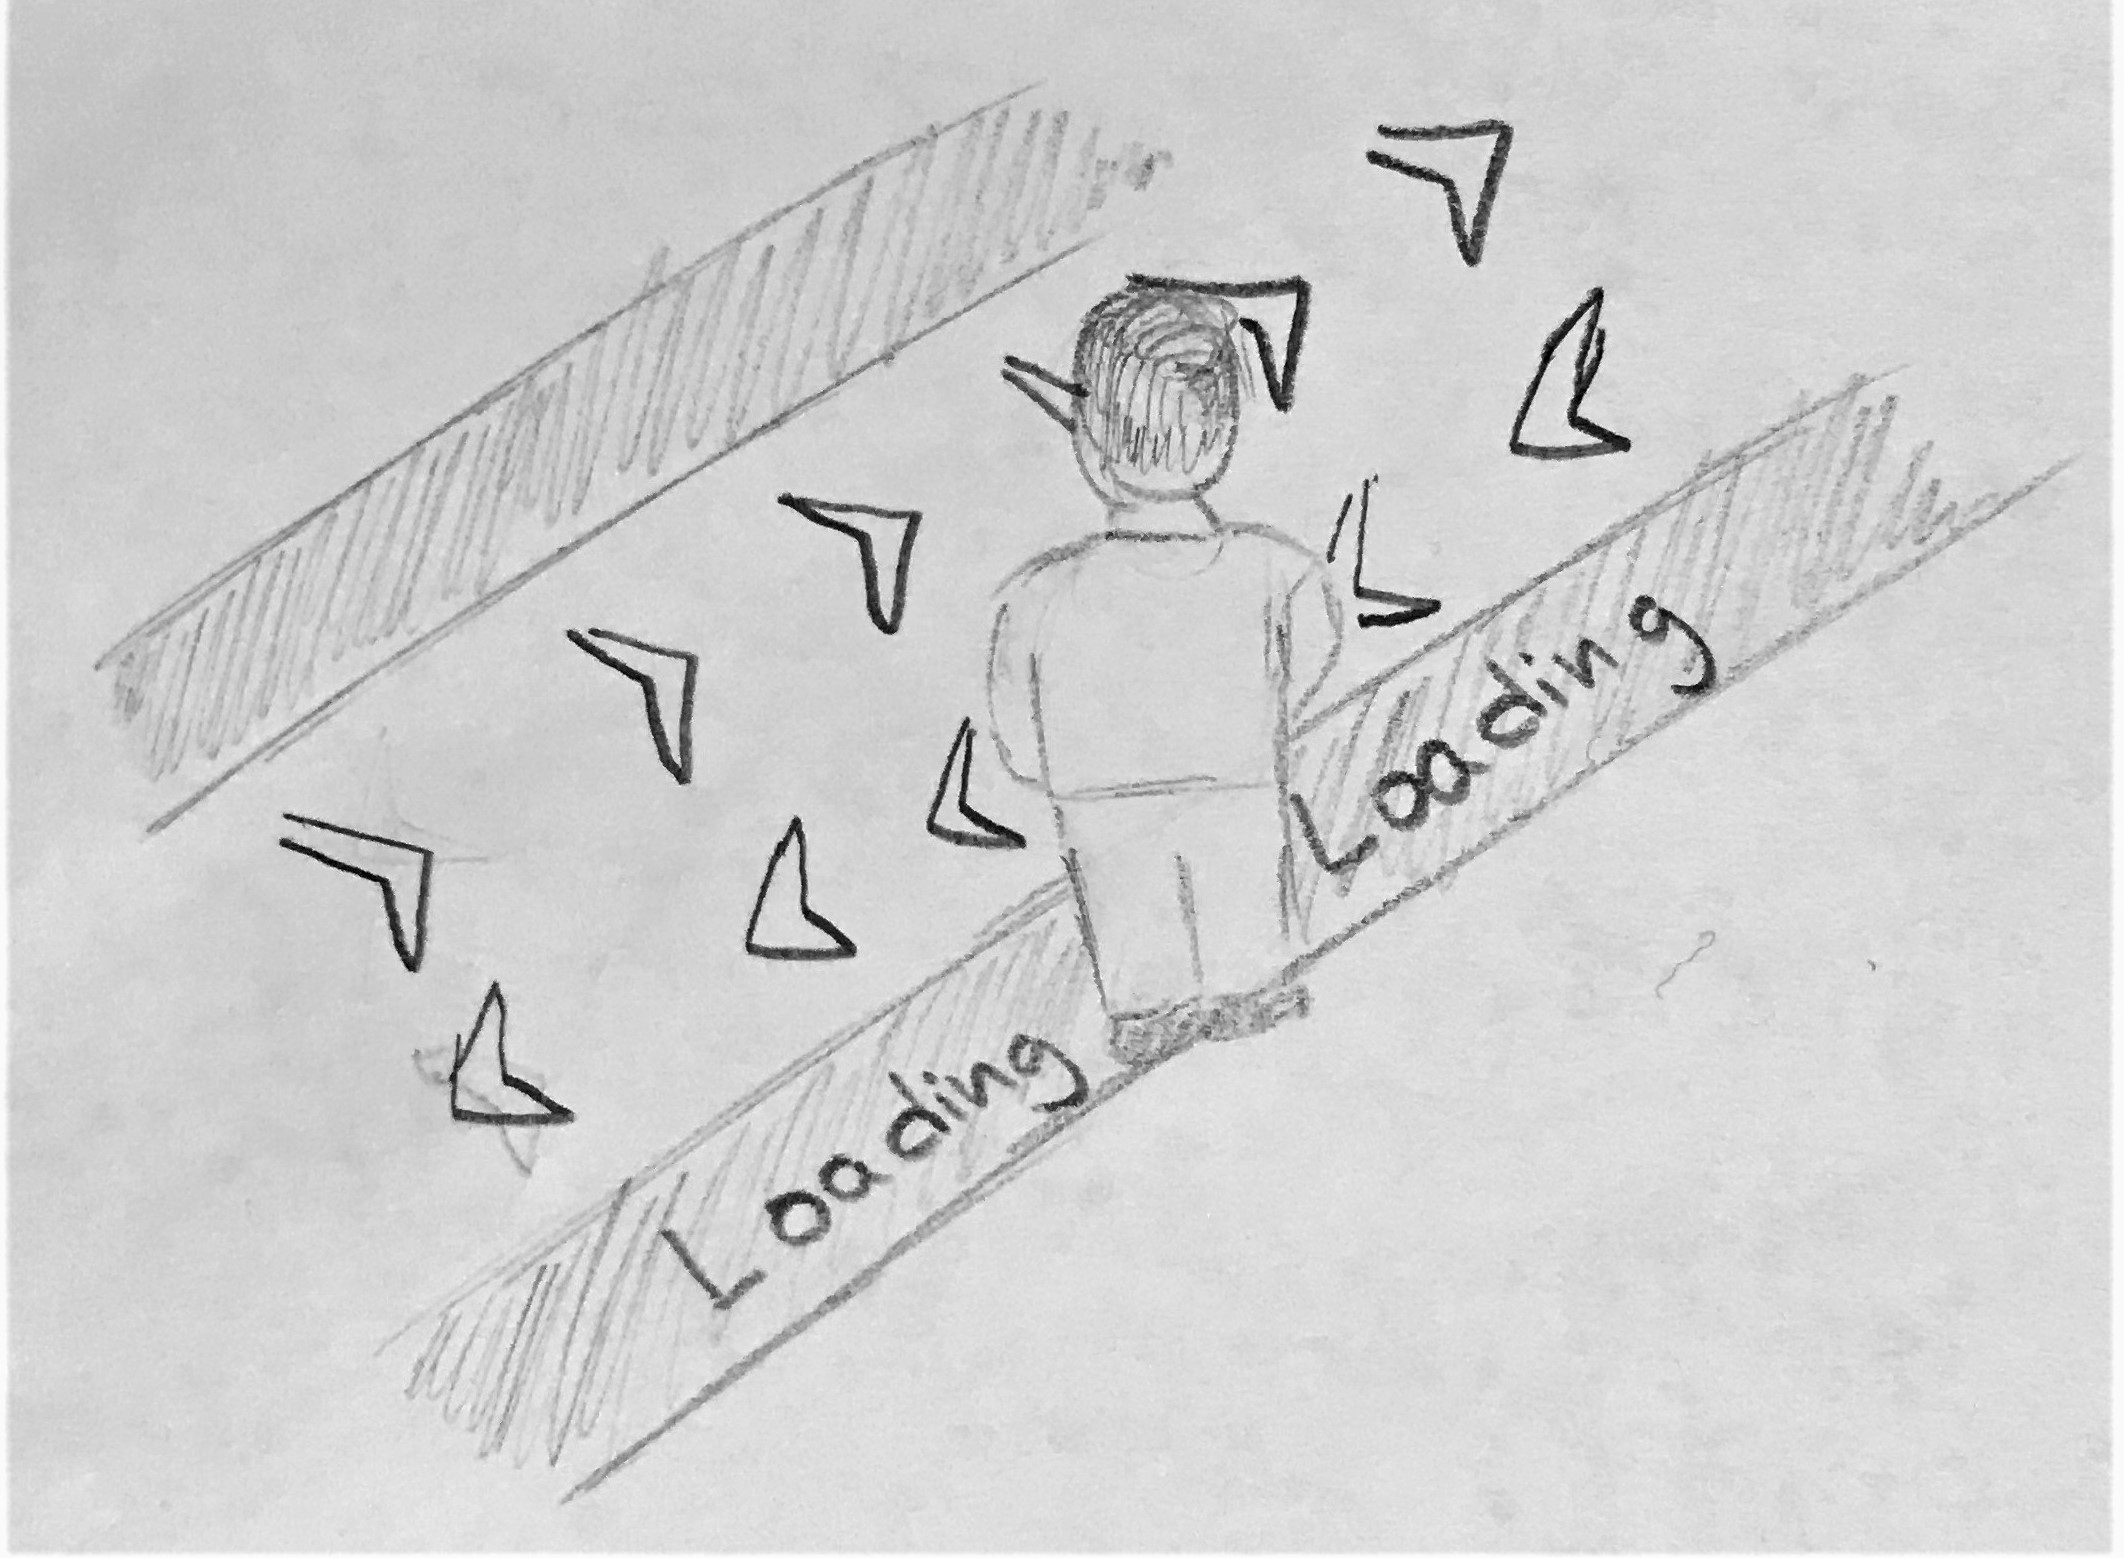 Loading
Loading